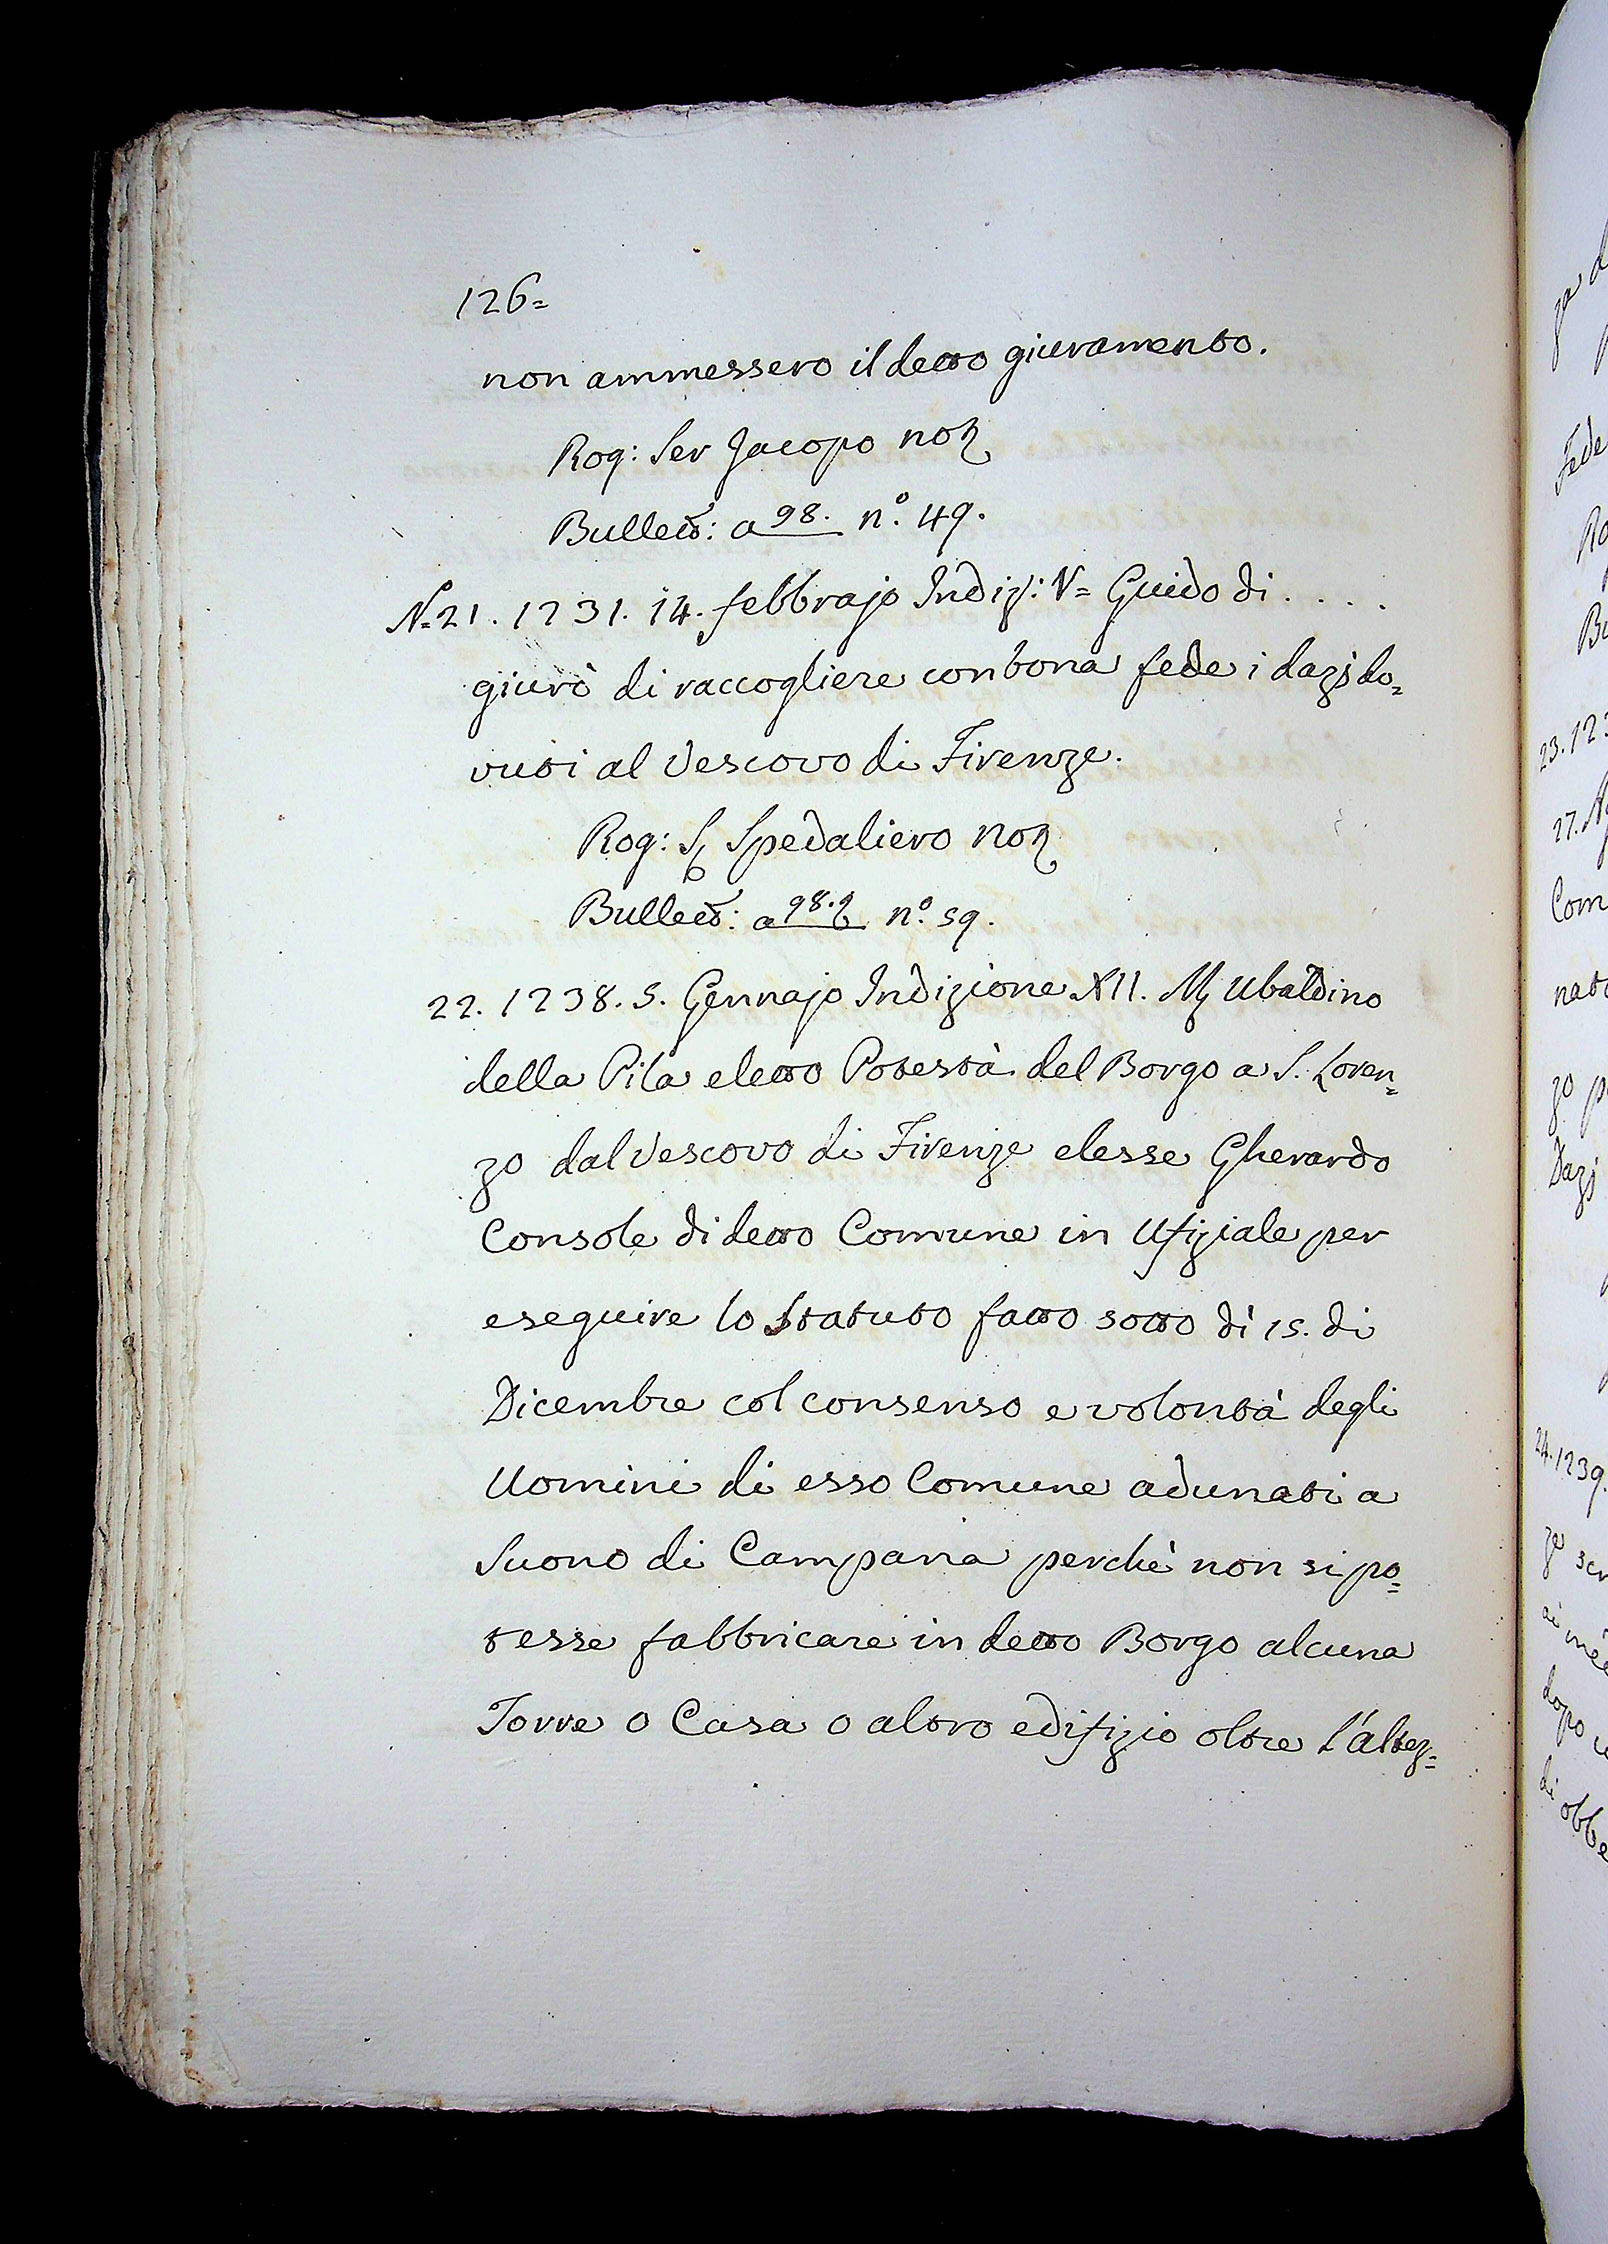 126=
non ammessero il detto giuramento.
Rog: Ser Jacopo not
Bullett: a 98. n.º 49.
N=21. 1231. 14. febbrajo Indiz: V= Guido di ....
giurò di raccogliere con bona fede i dazj do=
vuti al Vescovo di Firenze.
Rog: S Spedaliero Not
Bullett: a 98.t n.º 59.
22. 1238. 5. Gennajo Indizione XII. M Ubaldino
della Pila eletto Potestà del Borgo a S. Loren=
zo dal Vescovo di Firenze elesse Gherardo
Console di detto Comune in Ufiziale per
eseguire lo Statuto fatto sotto dì 15. di
Dicembre col consenso e volontà degli
Uomini di esso Comune adunati a
Suono di Campana perchè non si po=
tesse fabbricare in detto Borgo alcuna
Torre o Casa o altro edifizio oltre l'altez=
23. 123
27.
Com
nato
zo
Dazj
24. 1239.
dopo
di obbe